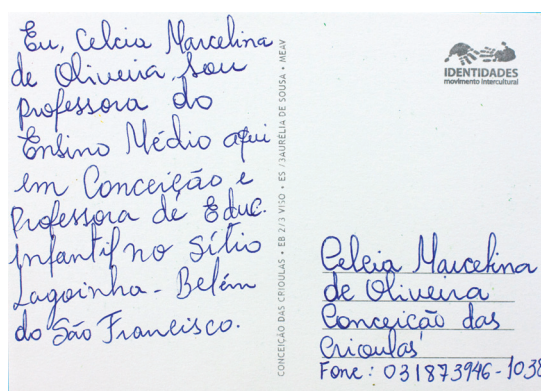 Eu, Celcia Marcelina
de Oliveira, sou
professora do
Ensino Médio aqui
em Conceição e
Professora de Educ.
Infantil no Sítio
Lagoinha - Belém
do São Francisco.
CONCEIÇÃO DAS CRIOULAS • EB 2/3 VISO • ES /3AURÉLIA DE SOUSA • MEAV
IDENTIDADES
movimento intercultural
Celcia Marcelina
de Oliveira
Conceição das
Crioulas
Fone: 031873946-1038